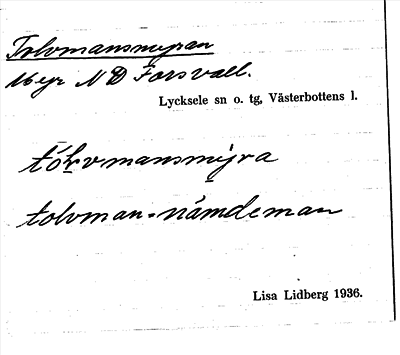 Tolvmansmyran
Myr N D Forsvall.
Lycksele sn o. tg, Västerbottens l.
tólvmansmyra
tolvman = nämdeman
Lisa Lidberg 1936.